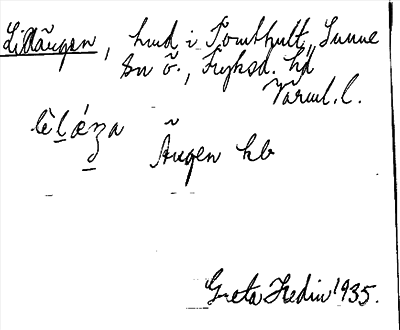 Lillängen, hmd i Tomthult, Sunne
sn ö., Fryksd. hd
Värml. l.
Ängen kb
Greta Hedin 1935.